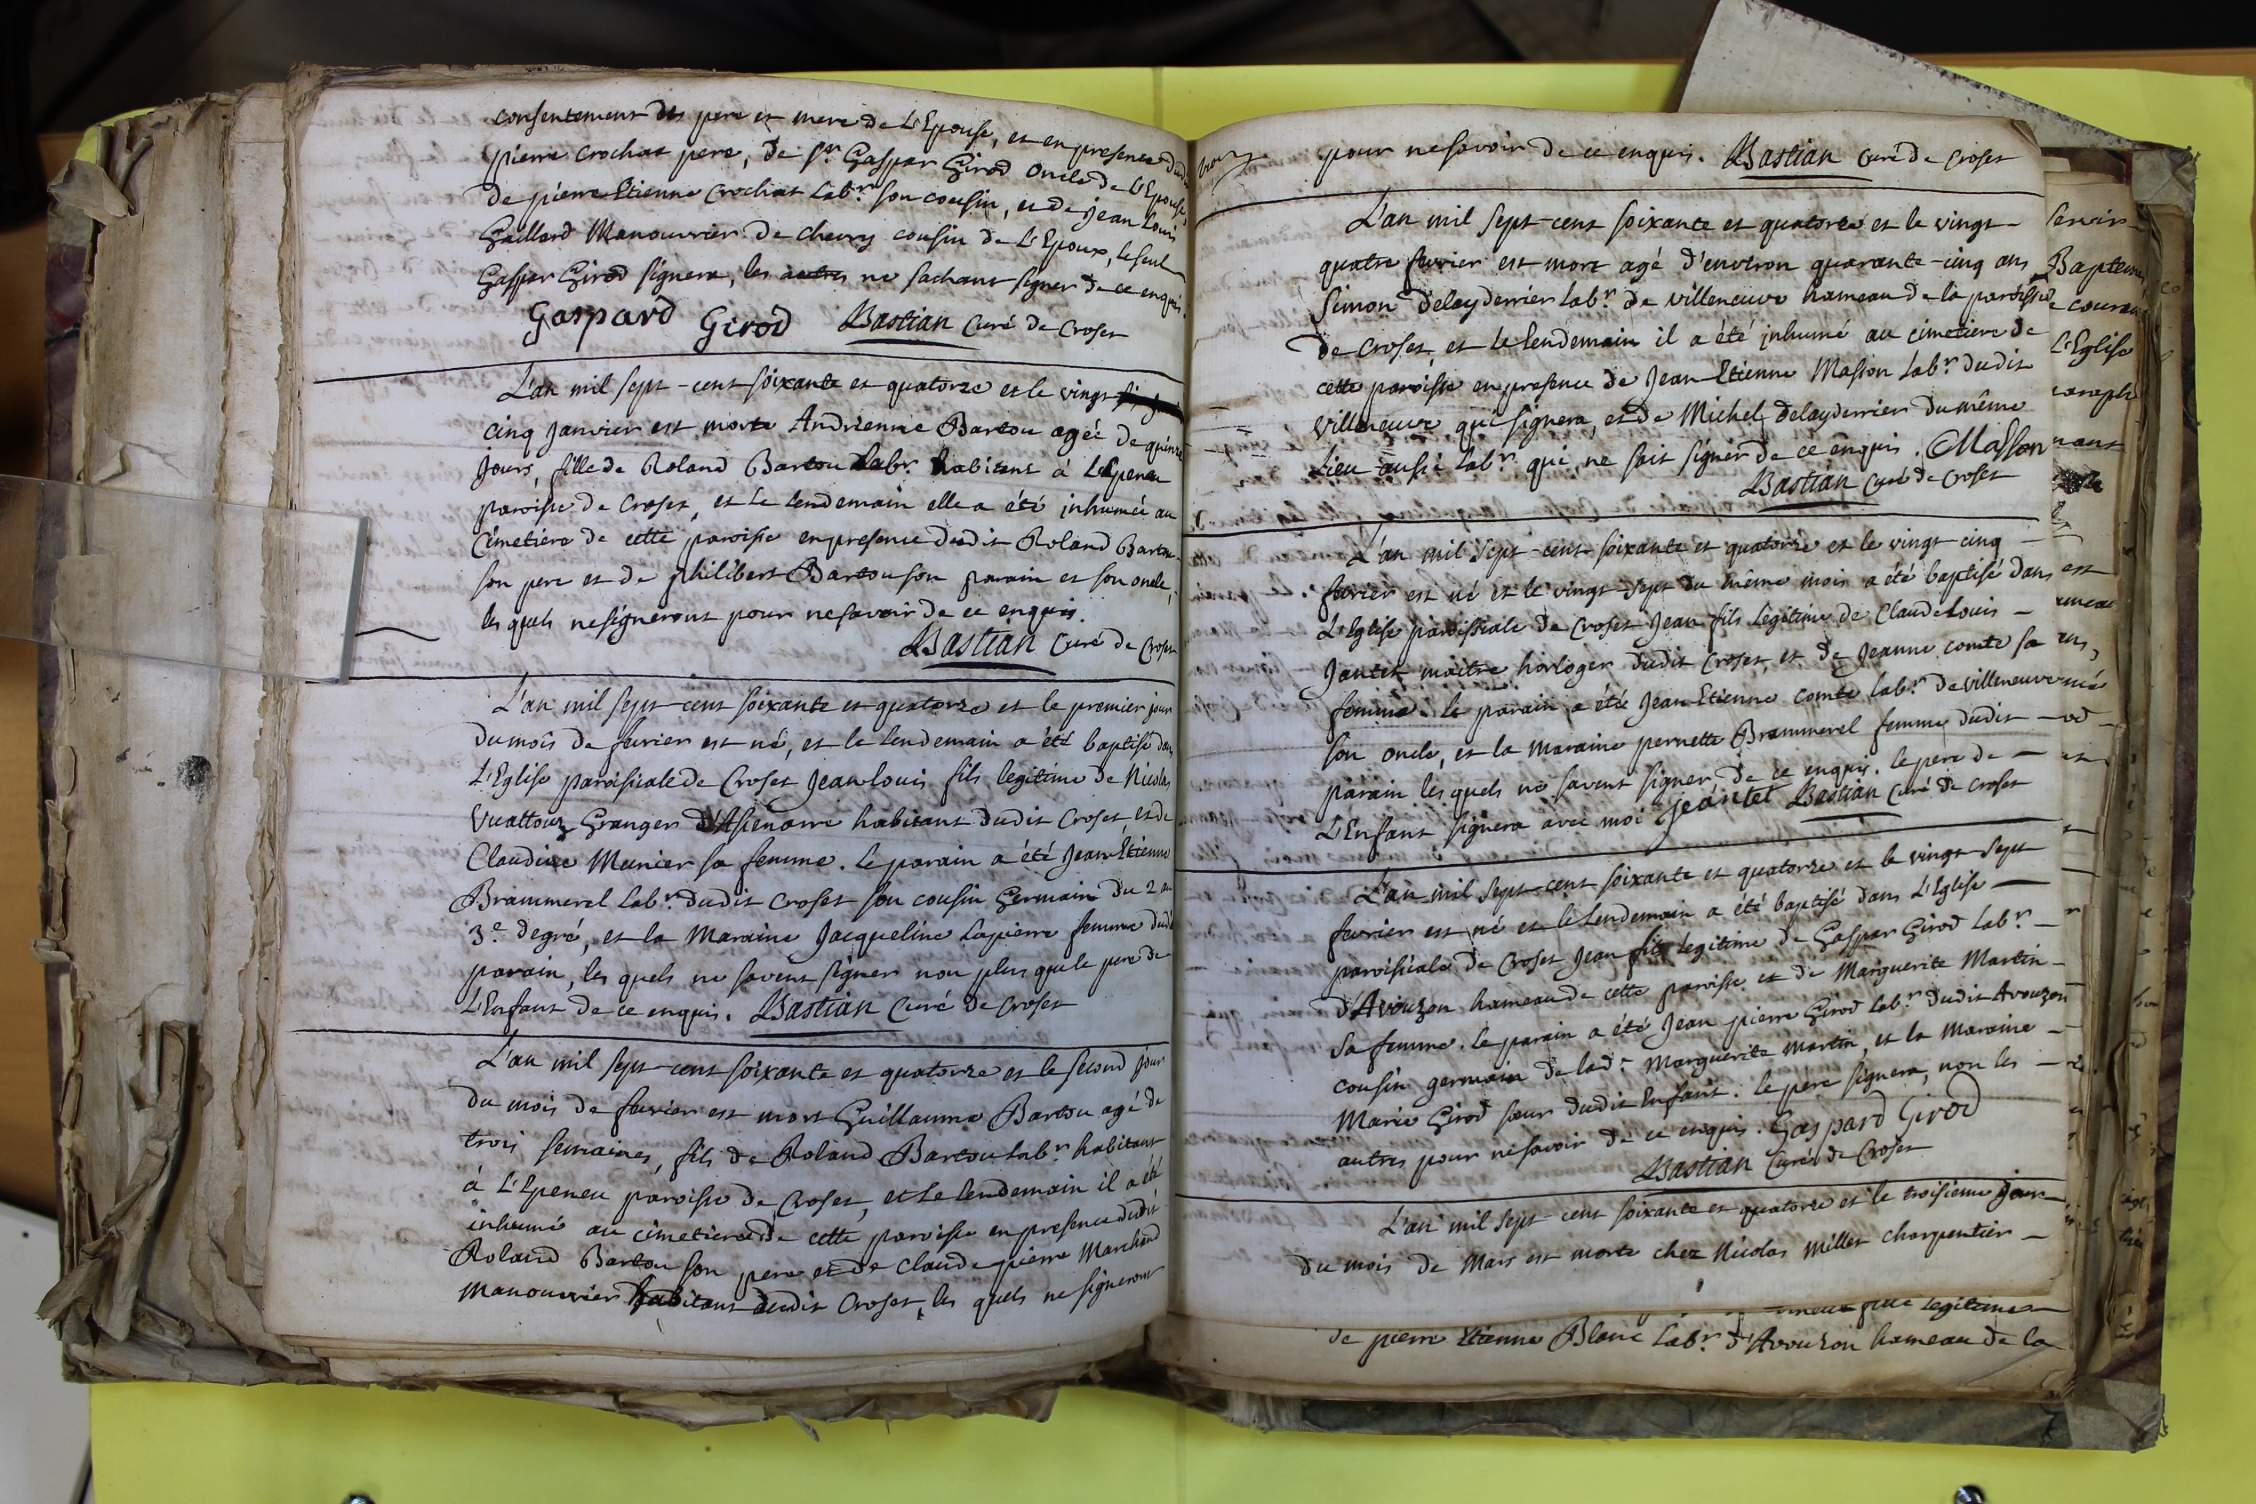 consentement des pere et mere de L'Epouse, et en presence dudit
pierre crochat pere, de Sr. Gaspar Girod oncle de L'Epouse,
de pierre Etienne Crochat Labr. son cousin, et de jean Louis
Gaillard Manouvrier de chevry cousin de L'Epoux, le seul
Gaspar Girod signera, les autres ne sachant signer de ce enquis.
Gaspard Girod Bastian Curé de Croset
L'an mil sept-cent soixante et quatorze et le vingt
cinq janvier est morte Andrienne Bartou agée de quinze
jours, fille de Roland Bartou Labr. habitant à L'Epeneu
paroisse de Croset, et le lendemain elle a été inhumée au
Cimetière de cette paroisse en presence dudit Roland Bartou
son pere et de philibert Bartou son parain et son oncle,
les quels ne signeront pour ne savoir de ce enquis.
Bastian Curé de Croset
L'an mil sept-cent soixante et quatorze et le premier jour
du mois de fevrier est né, et le lendemain a été baptisé dans
L'Eglise paroissiale de Croset jean louis fils legitime de Nicolas
Vuattoux Granger d'Asserans habitant dudit Croset et de
Claudine Munier sa femme. Le parain a été Jean Etienne
Brammerel Labr. dudit Croset son cousin Germain du 2 au
3e. degré, et la Maraine Jacqueline Lapierre femme dudit
parain, les quels ne savent signer non plus que le pere de
L'Enfant de ce enquis. Bastian Curé de Croset
L'an mil sept-cent soixante et quatorze et le second jour
du mois de fevrier est mort Guillaume Bartou agé de
trois semaines, fils de Roland Bartou Labr. habitant
à L'Epeneu paroisse de Croset, et le lendemain il a été
inhumé au cimetiere de cette paroisse en presence dudit
Roland Bartou son pere et de Claude pierre Marchand
Manouvrier habitant dudit Croset, les quels ne signeront
pour ne savoir de ce enquis. Bastian Curé de Croset
L'an mil sept-cent soixante et quatorze et le vingt-
quatre fevrier est mort agé d'environ quarante-cinq ans
Simon Delayderrier Labr. de villeneuve hameau de la paroisse
de Croset, et le lendemain il a été inhumé au cimetiere de
cette paroisse en presence de Jean-Etienne Masson Labr. dudit
villeneuve qui signera, et de Michel delayderrier du même
Lieu aussi Labr. qui ne sait signer de ce enquis. Masson
Bastian Curé de Croset
L'an mil sept-cent soixante et quatorze et le vingt cinq
fevrier est né et le vingt-sept du même mois a été baptisé dans
L'Eglise paroissiale de Croset Jean fils legitime de Claude Louis
Jantet maitre horloger dudit Croset, et de Jeanne comte sa
femme. le parain a été Jean Etienne comte Labr. de villeneuve
son oncle, et la Maraine pernette Brammerel femme dudit
parain les quels ne savent signer de ce enquis. le pere de
L'Enfant signera avec moi Jeantet Bastian Curé de Croset
L'an mil sept-cent soixante et quatorze et le vingt-sept
fevrier est né et le lendemain a été baptisé dans L'Eglise
paroissiale de Croset Jean fils legitime de Gaspar Girod Labr.
d'Avouzon hameau de cette paroisse et de Marguerite Martin
sa femme. le parain a été Jean pierre Girod Labr. dudit Avouzon
cousin germain de lad. Marguerite Martin, et la Maraine
Marie Girod sœur dudit Enfant. le père signera, non les
autres pour ne savoir de ce enquis. Gaspard Girod
Bastian Curé de Croset
L'an mil sept-cent soixante et quatorze et le troisieme jour
du mois de Mars est morte chez Nicolas Millet charpentier
fille legitime
de pierre Etienne Blanc Labr. d'Avouzon hameau de la